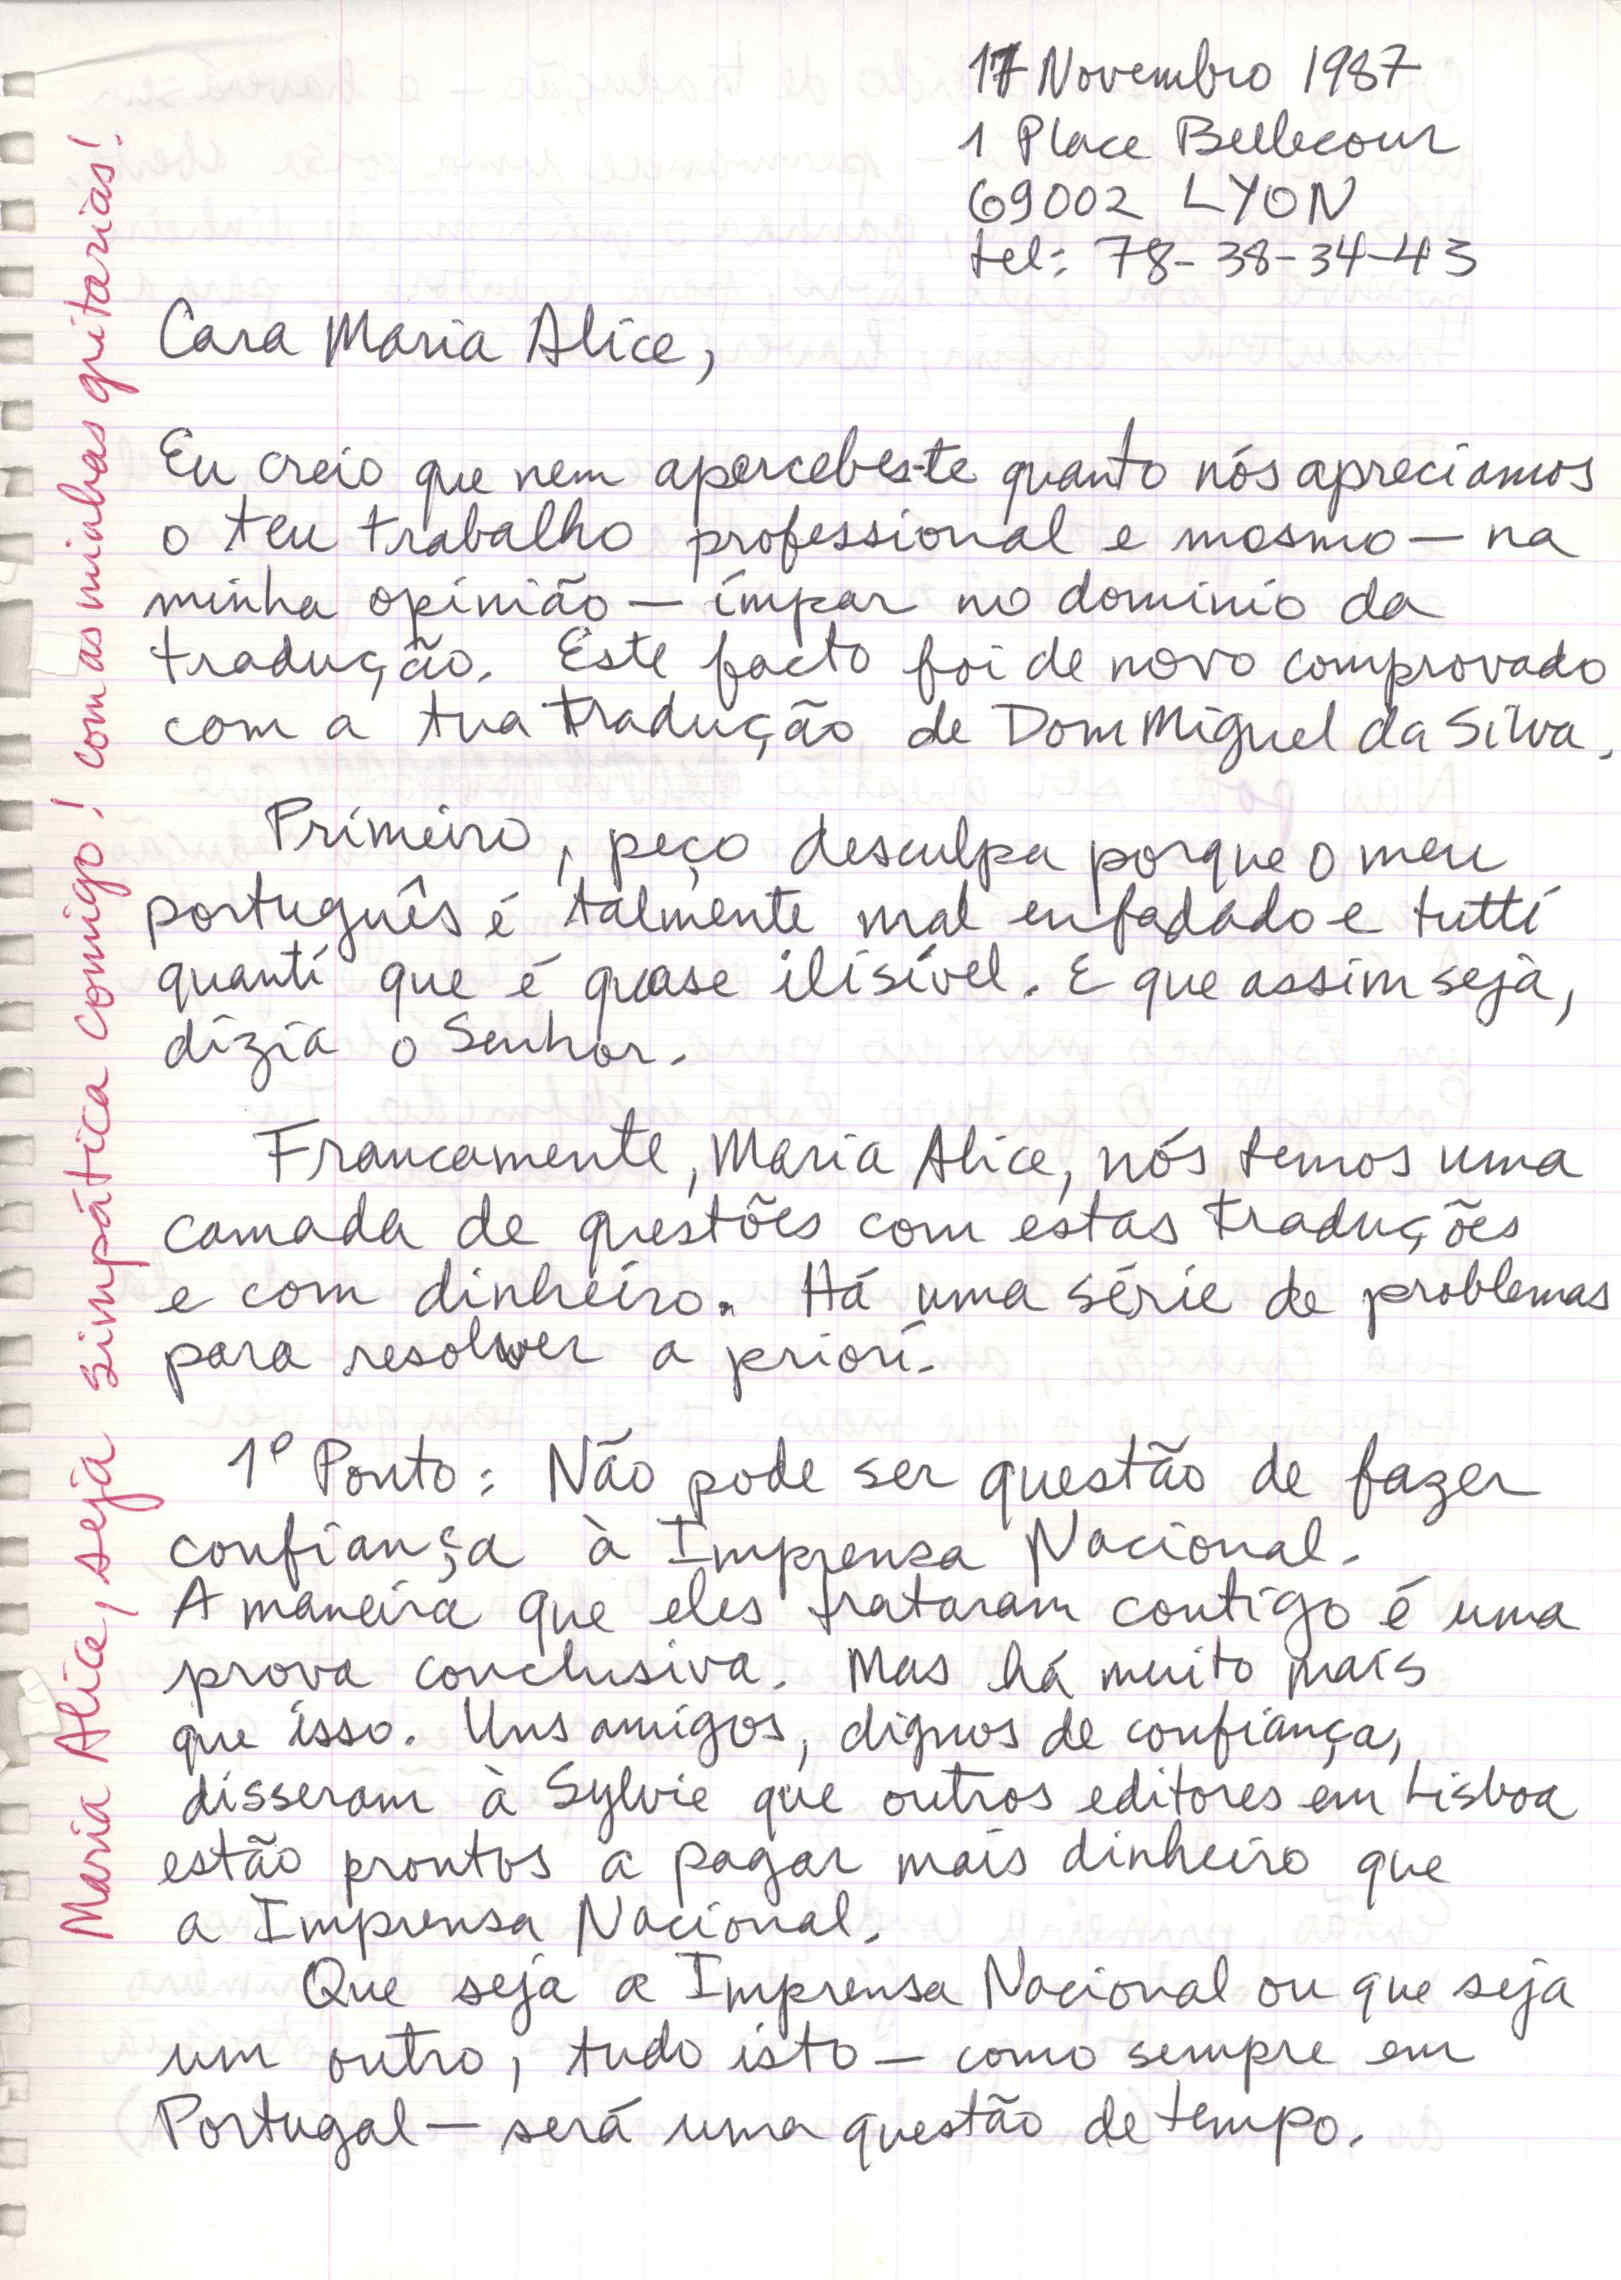 17 Novembro 1987
1 Place Bellecour
69002 LYON
tel: 78-38-34-43
Cara Maria Alice,
Eu creio que nem apercebes-te quanto nós apreciamos
o teu trabalho professional e mesmo — na
minha opinião — ímpar no dominio da
tradução. Este facto foi de novo comprovado
com a tua tradução de Dom Miguel da Silva.
Primeiro, peço desculpa porque o meu
português é talmente mal enfadado e tutti
quanti que é quase ilisível. E que assim seja,
dizia o Senhor.
Francamente, Maria Alice, nós temos uma
camada de questões com estas traduções
e com dinheiro. Há uma série de problemas
para resolver a priori.
1º Ponto: Não pode ser questão de fazer
confiança à Imprensa Nacional.
A maneira que eles trataram contigo é uma
prova conclusiva. Mas há muito mais
que isso. Uns amigos, dignos de confiança,
disseram à Sylvie que outros editores em Lisboa
estão prontos a pagar mais dinheiro que
a Imprensa Nacional.
Que seja a Imprensa Nacional ou que seja
um outro, tudo isto — como sempre em
Portugal — será uma questão de tempo.
Maria Alice, seja simpática comigo! com as minhas gritarias!